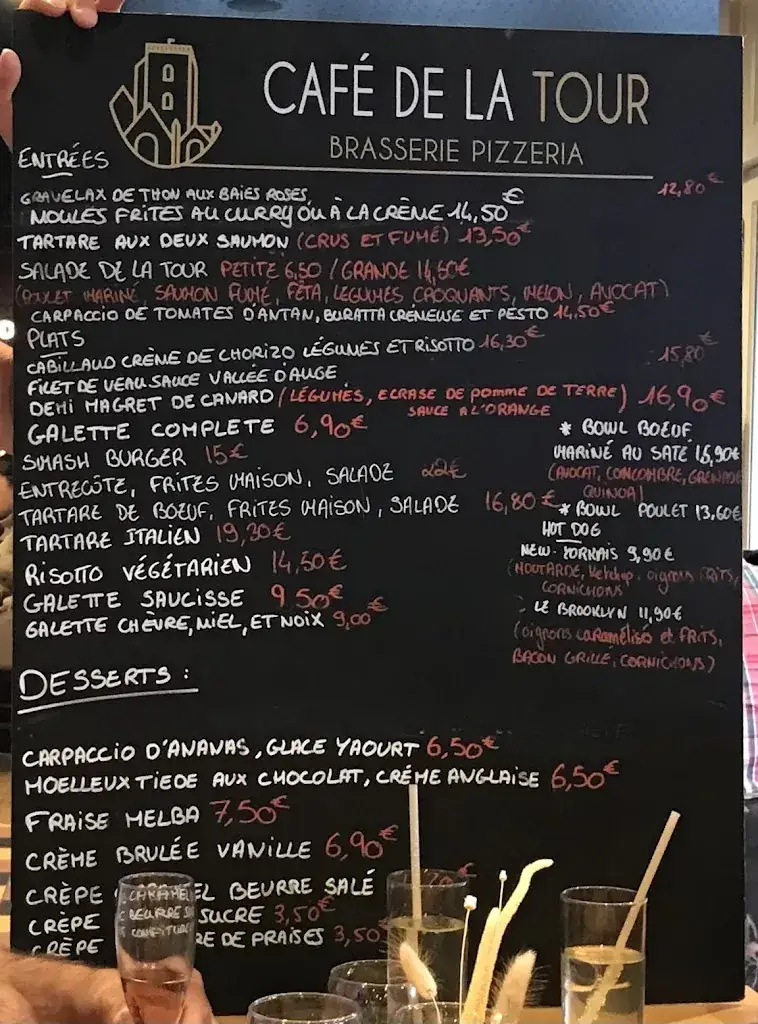 CAFÉ DE LA TOUR
BRASSERIE PIZZERIA
ENTRÉES
GRAVELAX DE THON AUX BAIES ROSES 12,80€
MOULES FRITES AU CURRY OU À LA CRÈME 14,50€
TARTARE AUX DEUX SAUMON (CRUS ET FUMÉ) 13,50€
SALADE DE LA TOUR PETITE 6,50 / GRANDE 14,50€
(POULET MARINÉ, SAUMON FUMÉ, FÉTA, LÉGUMES CROQUANTS, MELON, AVOCAT)
CARPACCIO DE TOMATES D'ANTAN, BURATTA CRÉMEUSE ET PESTO 14,50€
PLATS
CABILLAUD CRÈME DE CHORIZO LÉGUMES ET RISOTTO 16,30€
FILET DE VEAU SAUCE VALLÉE D'AUGE 15,80€
DEMI MAGRET DE CANARD (LÉGUMES, ECRASE DE POMME DE TERRE) 16,90€
SAUCE A L'ORANGE
GALETTE COMPLETE 6,90€
SMASH BURGER 15€
ENTRECÔTE, FRITES MAISON, SALADE 22€
TARTARE DE BOEUF, FRITES MAISON, SALADE 16,80€
TARTARE ITALIEN 19,30€
RISOTTO VÉGÉTARIEN 14,50€
GALETTE SAUCISSE 9.50€
GALETTE CHÈVRE, MIEL, ET NOIX 9,00€
* BOWL BOEUF
MARINÉ AU SATÉ 15,90€
(AVOCAT, CONCOMBRE, GRENADE
QUINOA)
* BOWL POULET 13,60€
HOT DOG
NEW-YORKAIS 9,90€
(MOUTARDE, Ketchup, oignons FRITS,
CORNICHONS
- LE BROOKLYN 11,90€
(oignons caramélisés et FRITS,
BACON GRILLÉ, CORNICHONS)
DESSERTS :
CARPACCIO D'ANANAS, GLACE YAOURT 6,50€
MOELLEUX TIEDE AUX CHOCOLAT, CRÉME ANGLAISE 6,50€
FRAISE MELBA 7,50€
CRÈME BRULÉE VANILLE 6,90€
CRÈPE CARAMEL BEURRE SALÉ
CRÈPE BEURRE SUCRE 3,50€
CRÈPE CONFITURE DE FRAISES 3,50